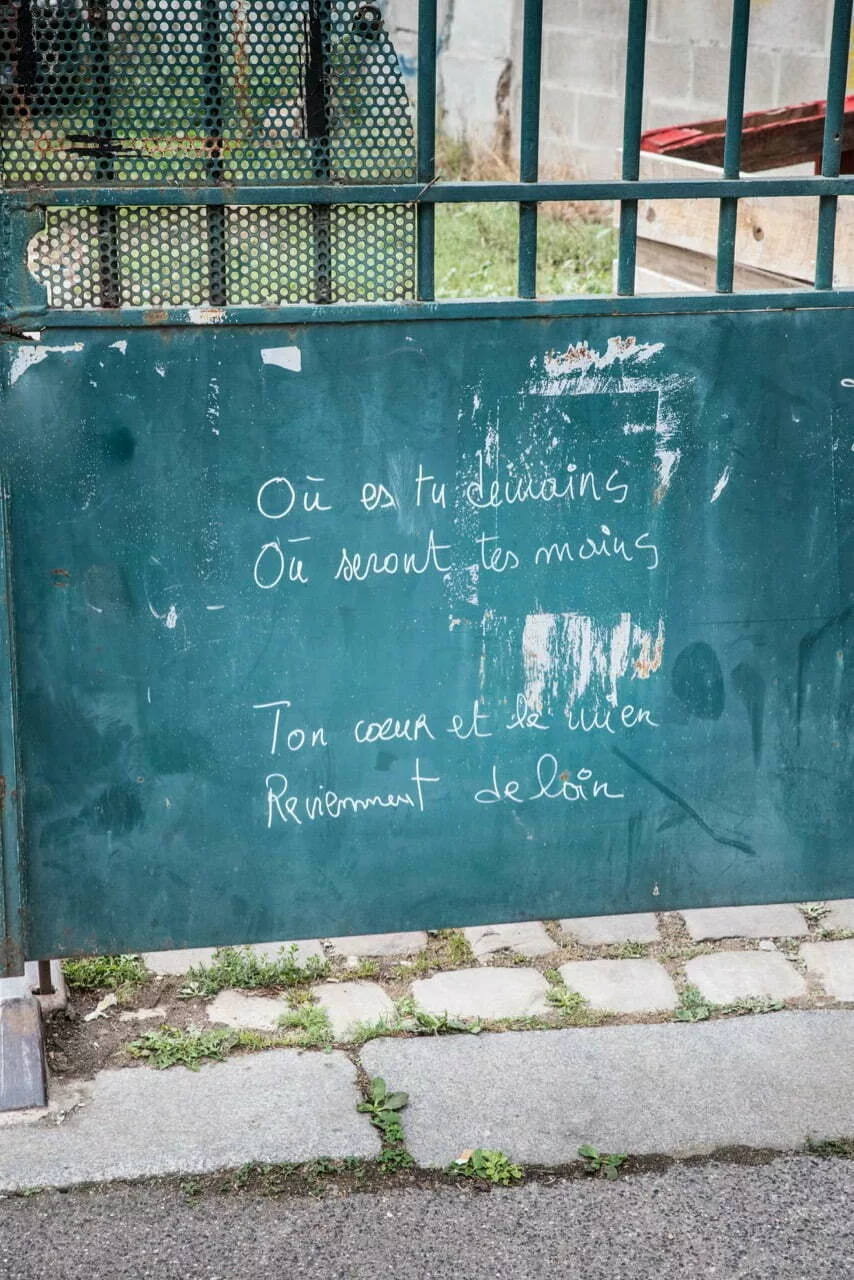 Où es tu demains
Où seront tes mains
Ton cœur et le mien
Reviennent de loin